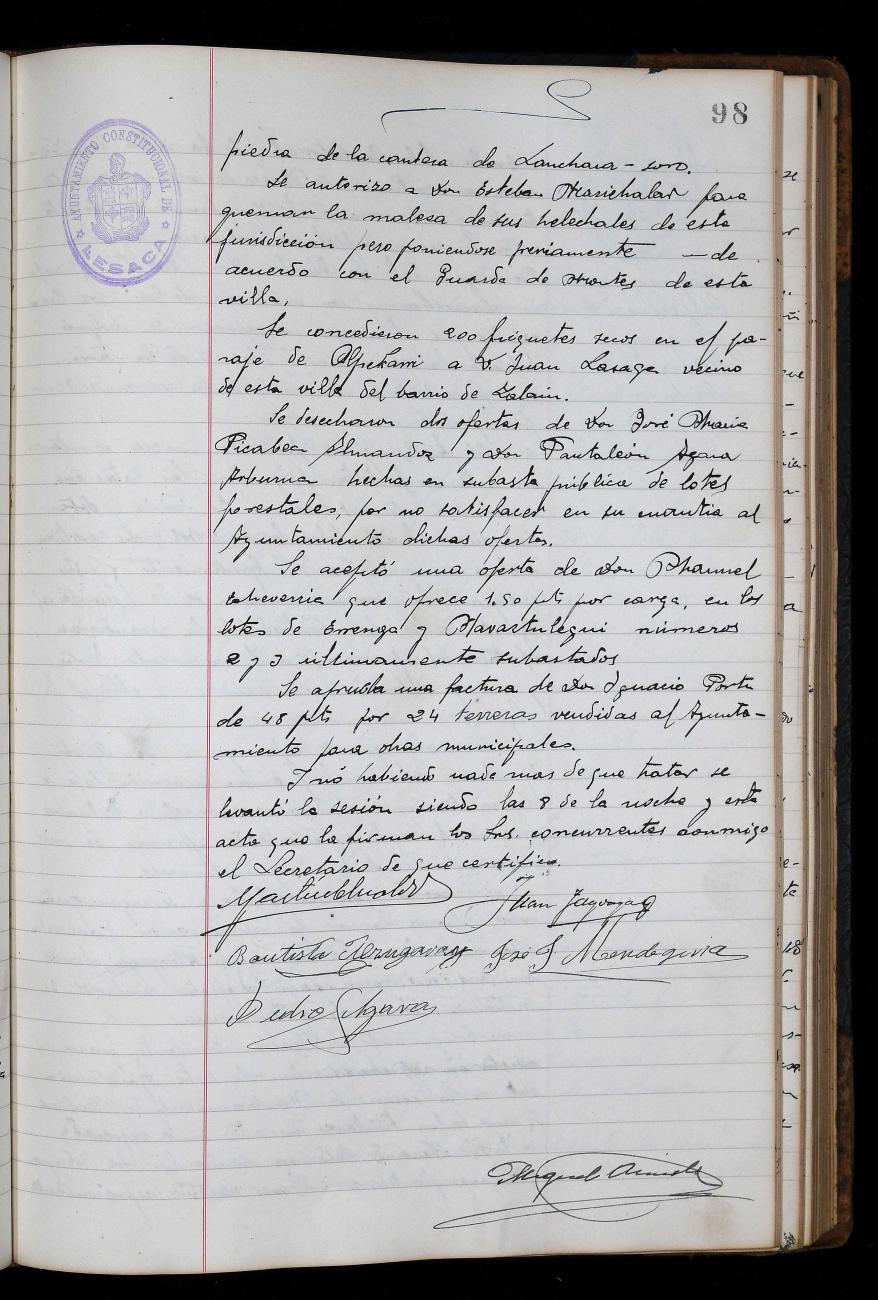 98
AYUNTAMIENTO CONSTITUCIONAL DE
LESACA
piedra de la cantera de Lanchara-soro.
Se autorizo a Don Esteban Marichalar para
quemar la malesa de sus helechales de esta
jurisdicción pero poniendose previamente — de
acuerdo con el Guarda de Montes de esta
villa.
Se concedieron 200 piquetes secos en el pa-
raje de Alpekarri a D. Juan Lasaga vecino
de esta villa del barrio de Zalain.
Se desecharon dos ofertas de Don José Maria
Picabea Almandoz y Don Pantaleón Agara
hechas en subasta pública de lotes
forestales, por no satisfacer en su cuantia al
Ayuntamiento dichas ofertas.
Se aceptó una oferta de Don Manuel
Echeverria que ofrece 1.50 pts por carga, en los
lotes de Errenga y numeros
2 y 3 ultimamente subastados
Se aprueba una factura de Don Ignacio Portu
de 48 pts por 24 terreras vendidas al Ayunta-
miento para obras municipales.
Y nó habiendo nada mas de que tratar se
levantó la sesión siendo las 8 de la noche y esta
acta que la firman los Srs. concurrentes conmigo
el Secretario de que certifico.
Juan
Bautista José J. Mendeguia
Pedro Agara
Miguel